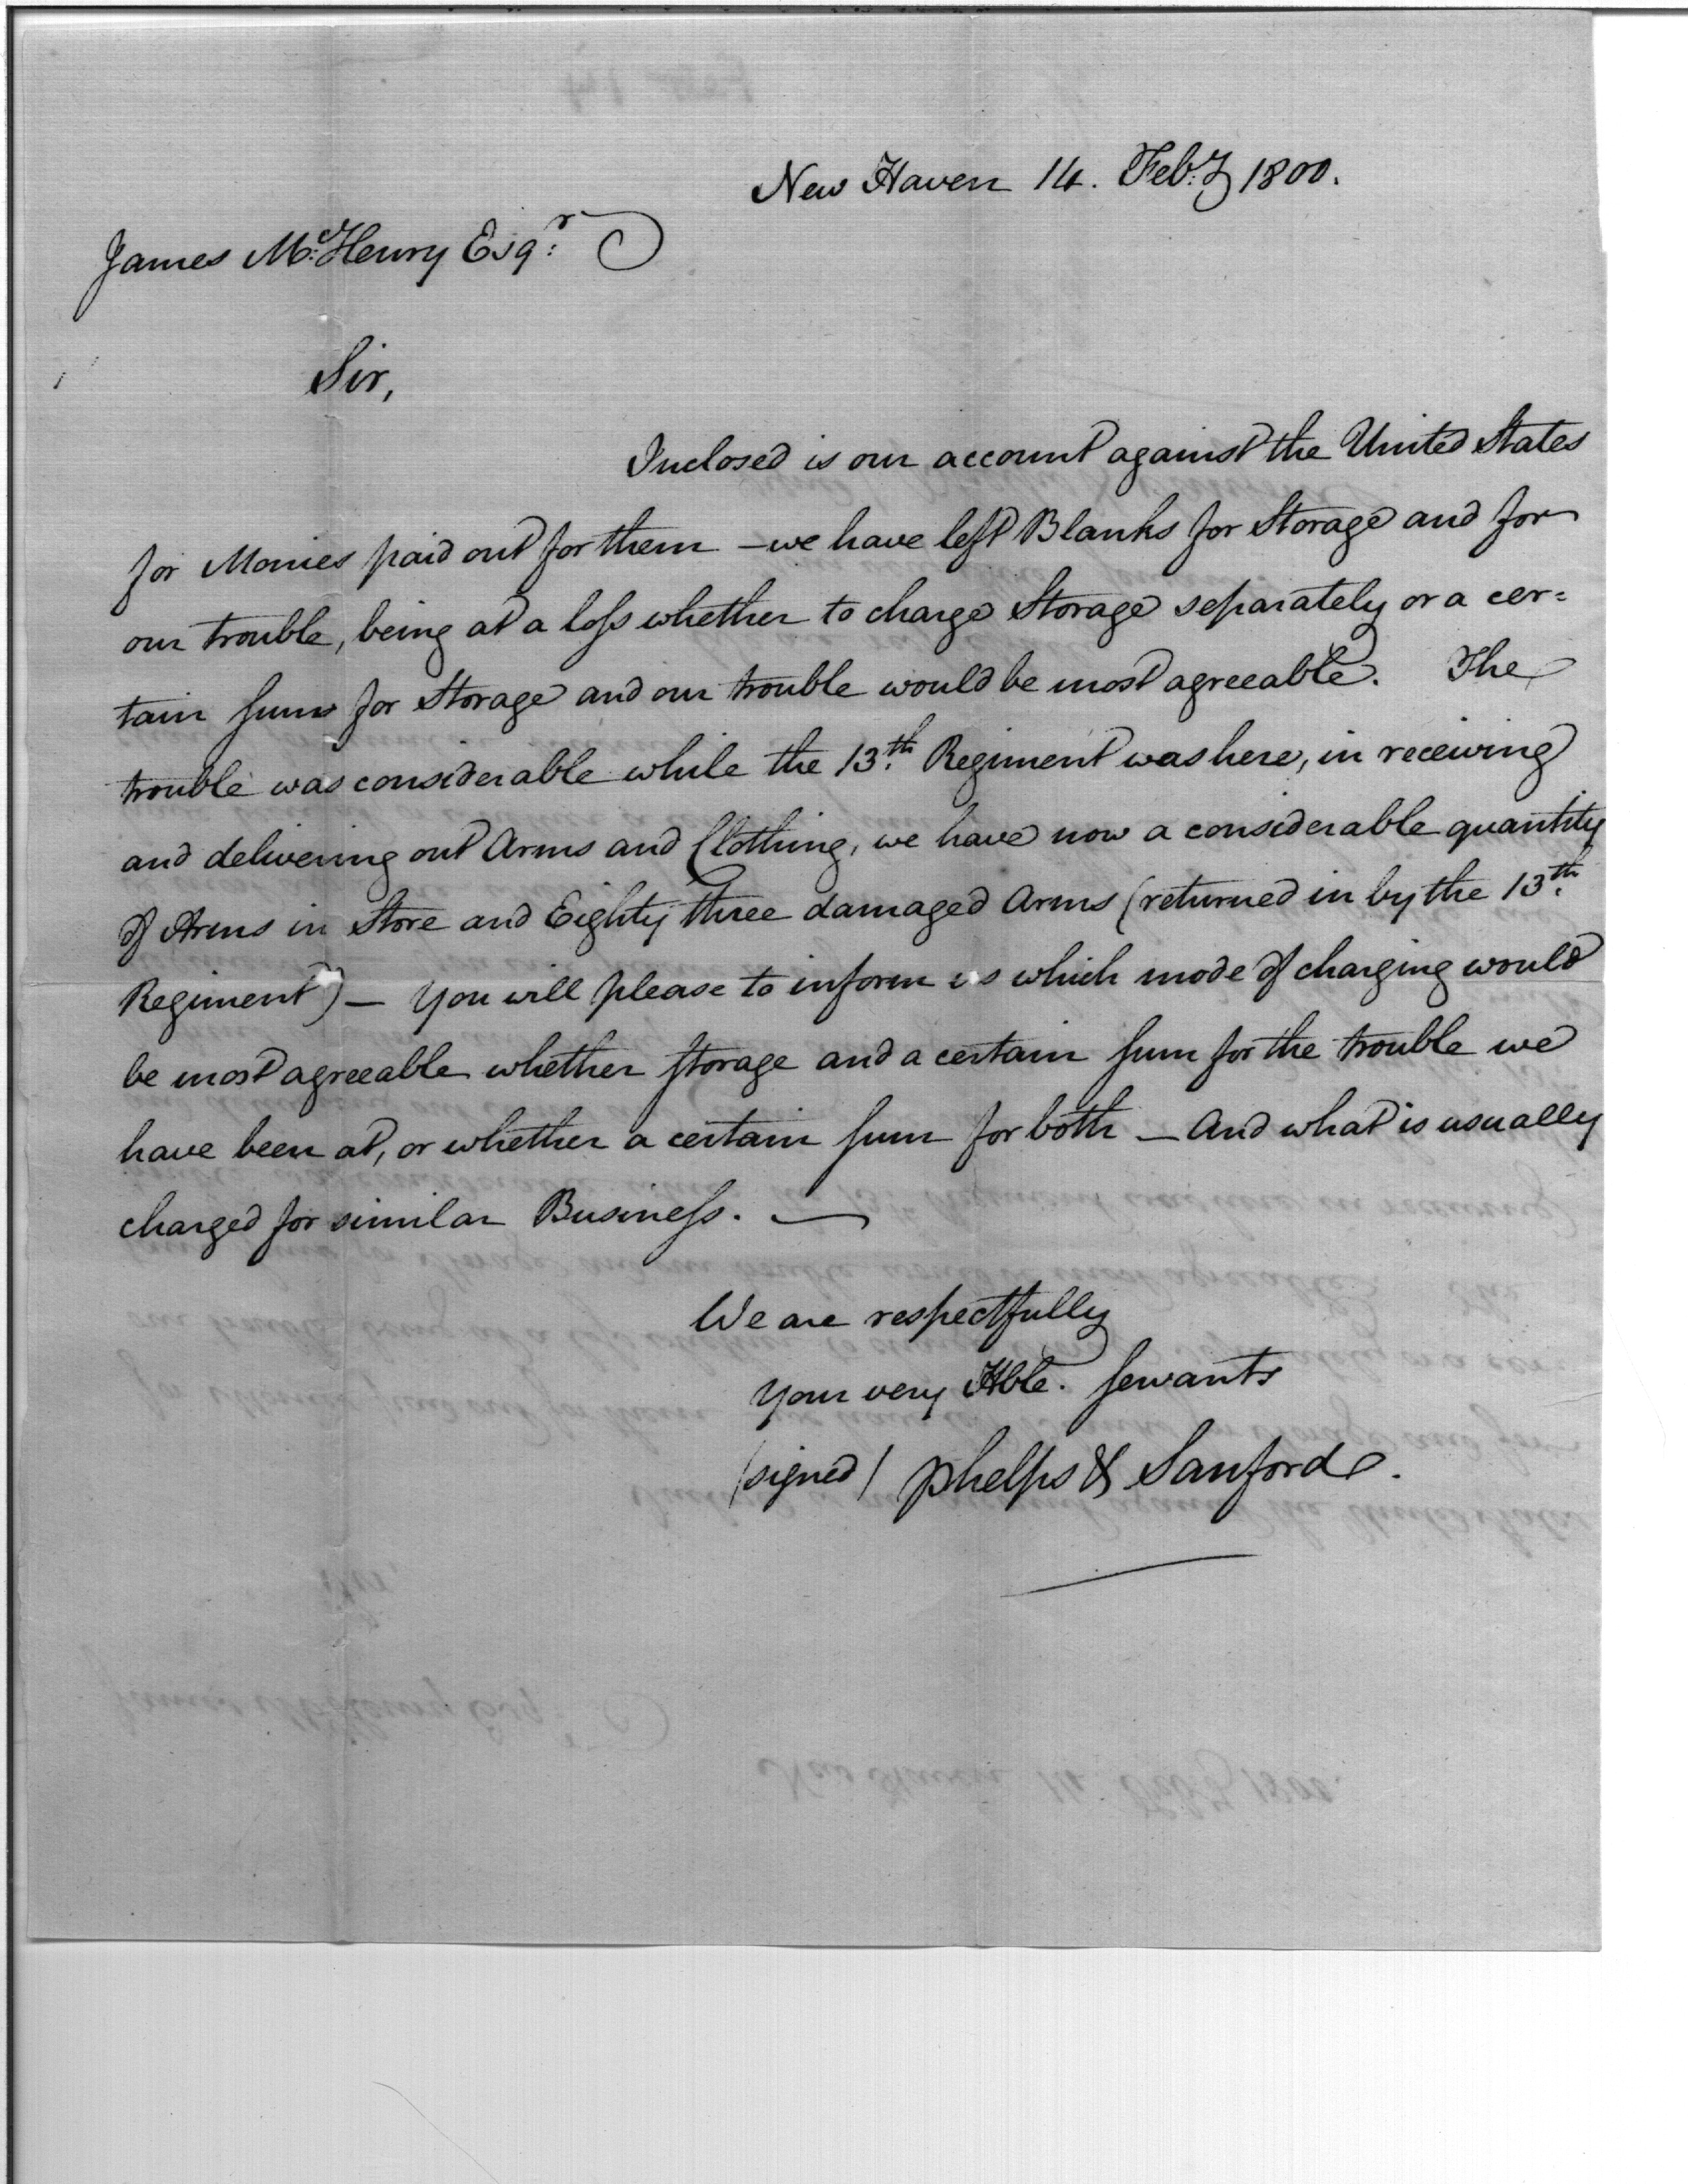 New Haven 14. Feb:y 1800.
James Mc:Henry Esqr:
Sir,
Inclosed is our account against the United States
for Monies paid out for them – we have left Blanks for Storage and for
our trouble, being at a loss whether to charge Storage separately or a cer=
tain sum for Storage and our trouble would be most agreeable. The
trouble was considerable while the 13.th Regiment was here, in receiving
and delivering out Arms and Clothing, we have now a considerable quantity
of Arms in Store and Eighty three damaged Arms (returned in by the 13.th
Regiment) – You will please to inform us which mode of charging would
be most agreeable whether storage and a certain sum for the trouble we
have been at, or whether a certain sum for both – And what is usually
charged for similar Business. –
We are respectfully
Your very Hble. servants
(signed) Phelps & Sanford.